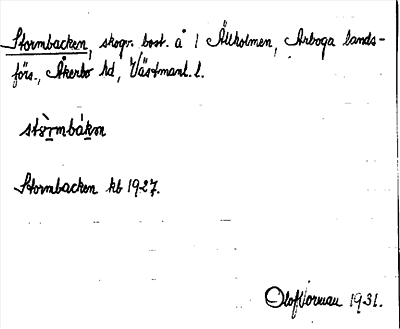 Stormbacken, skogv. bost. å 1 Ällholmen, Arboga lands-
förs., Åkerbo hd, Västmanl. l.
stòrmbákən
Stormbacken kb 1927.
Olof Norman 1931.